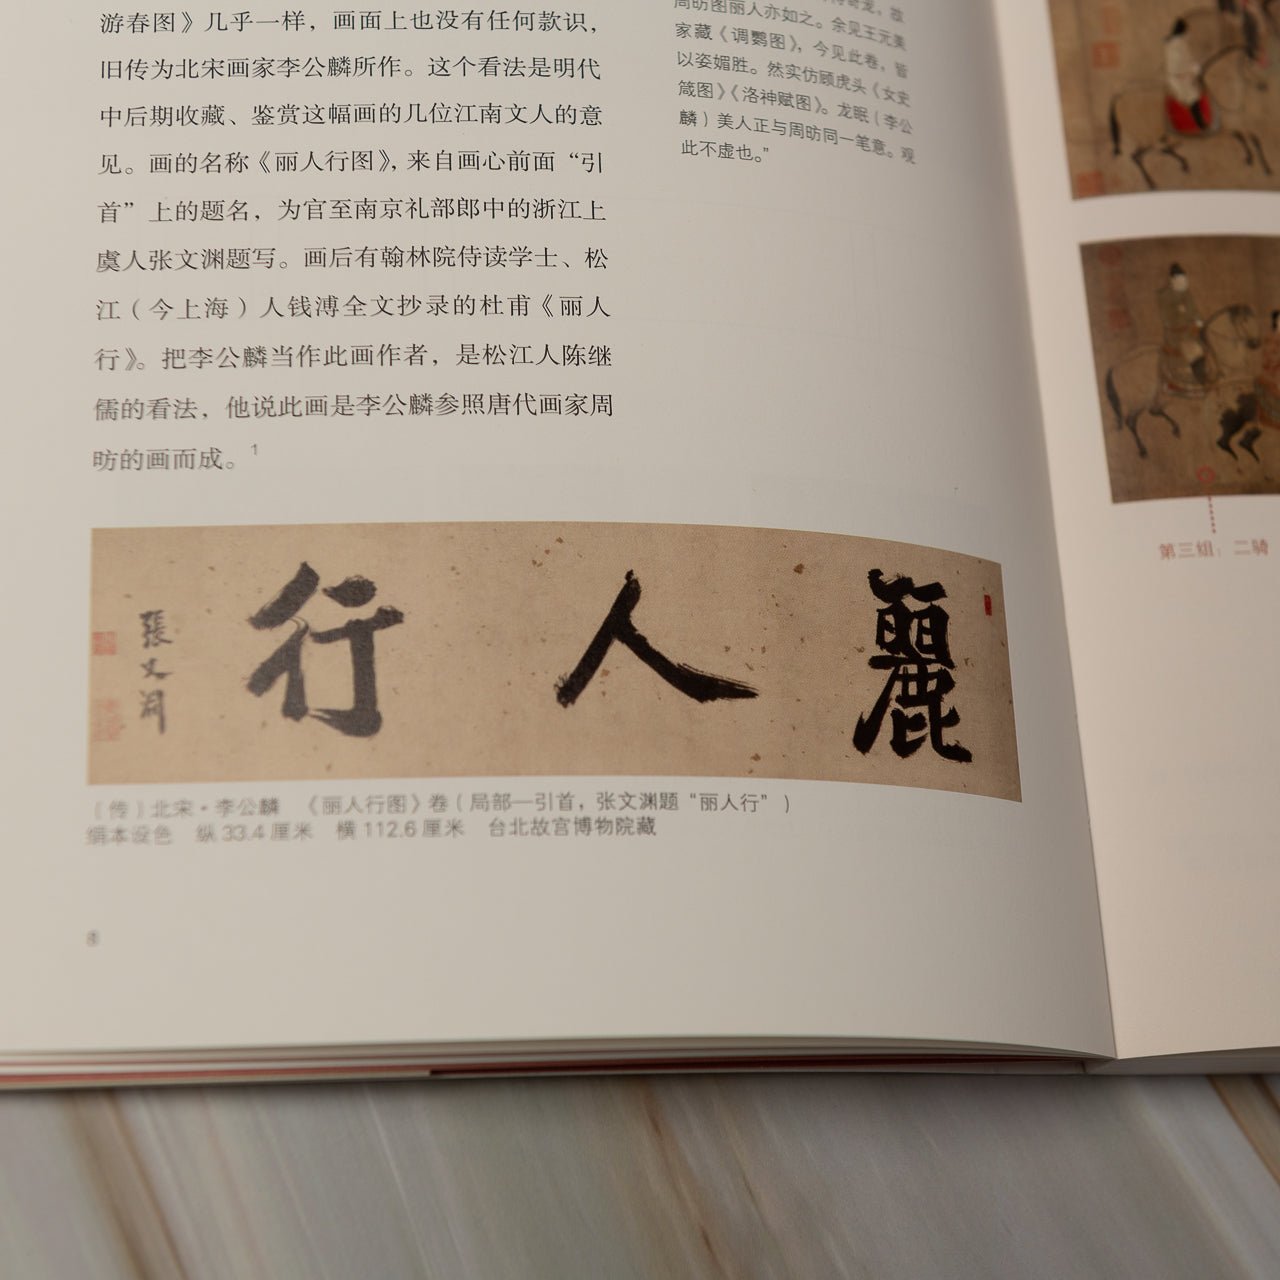 游春图》几乎一样，画面上也没有任何款识，
旧传为北宋画家李公麟所作。这个看法是明代
中后期收藏、鉴赏这幅画的几位江南文人的意
见。画的名称《丽人行图》，来自画心前面“引
首”上的题名，为官至南京礼部郎中的浙江上
虞人张文渊题写。画后有翰林院侍读学士、松
江（今上海）人钱溥全文抄录的杜甫《丽人
行》。把李公麟当作此画作者，是松江人陈继
儒的看法，他说此画是李公麟参照唐代画家周
昉的画而成。1
周昉图丽人亦如之。余见王元美
家藏《调鹦图》，今见此卷，皆
以姿媚胜。然实仿顾虎头《女史
箴图》《洛神赋图》。龙眠（李公
麟）美人正与周昉同一笔意。观
此不虚也。”
麗人行
張文淵
（传）北宋·李公麟 《丽人行图》卷（局部—引首，张文渊题“丽人行”）
绢本设色 纵 33.4 厘米 横 112.6 厘米 台北故宫博物院藏
8
第三组：二骑